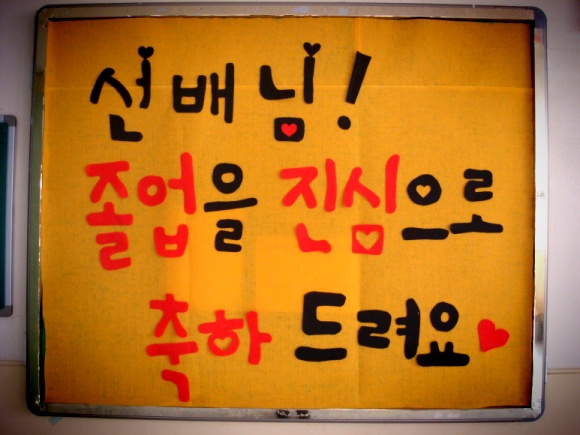 선배님!
졸업을 진심으로
축하 드려요